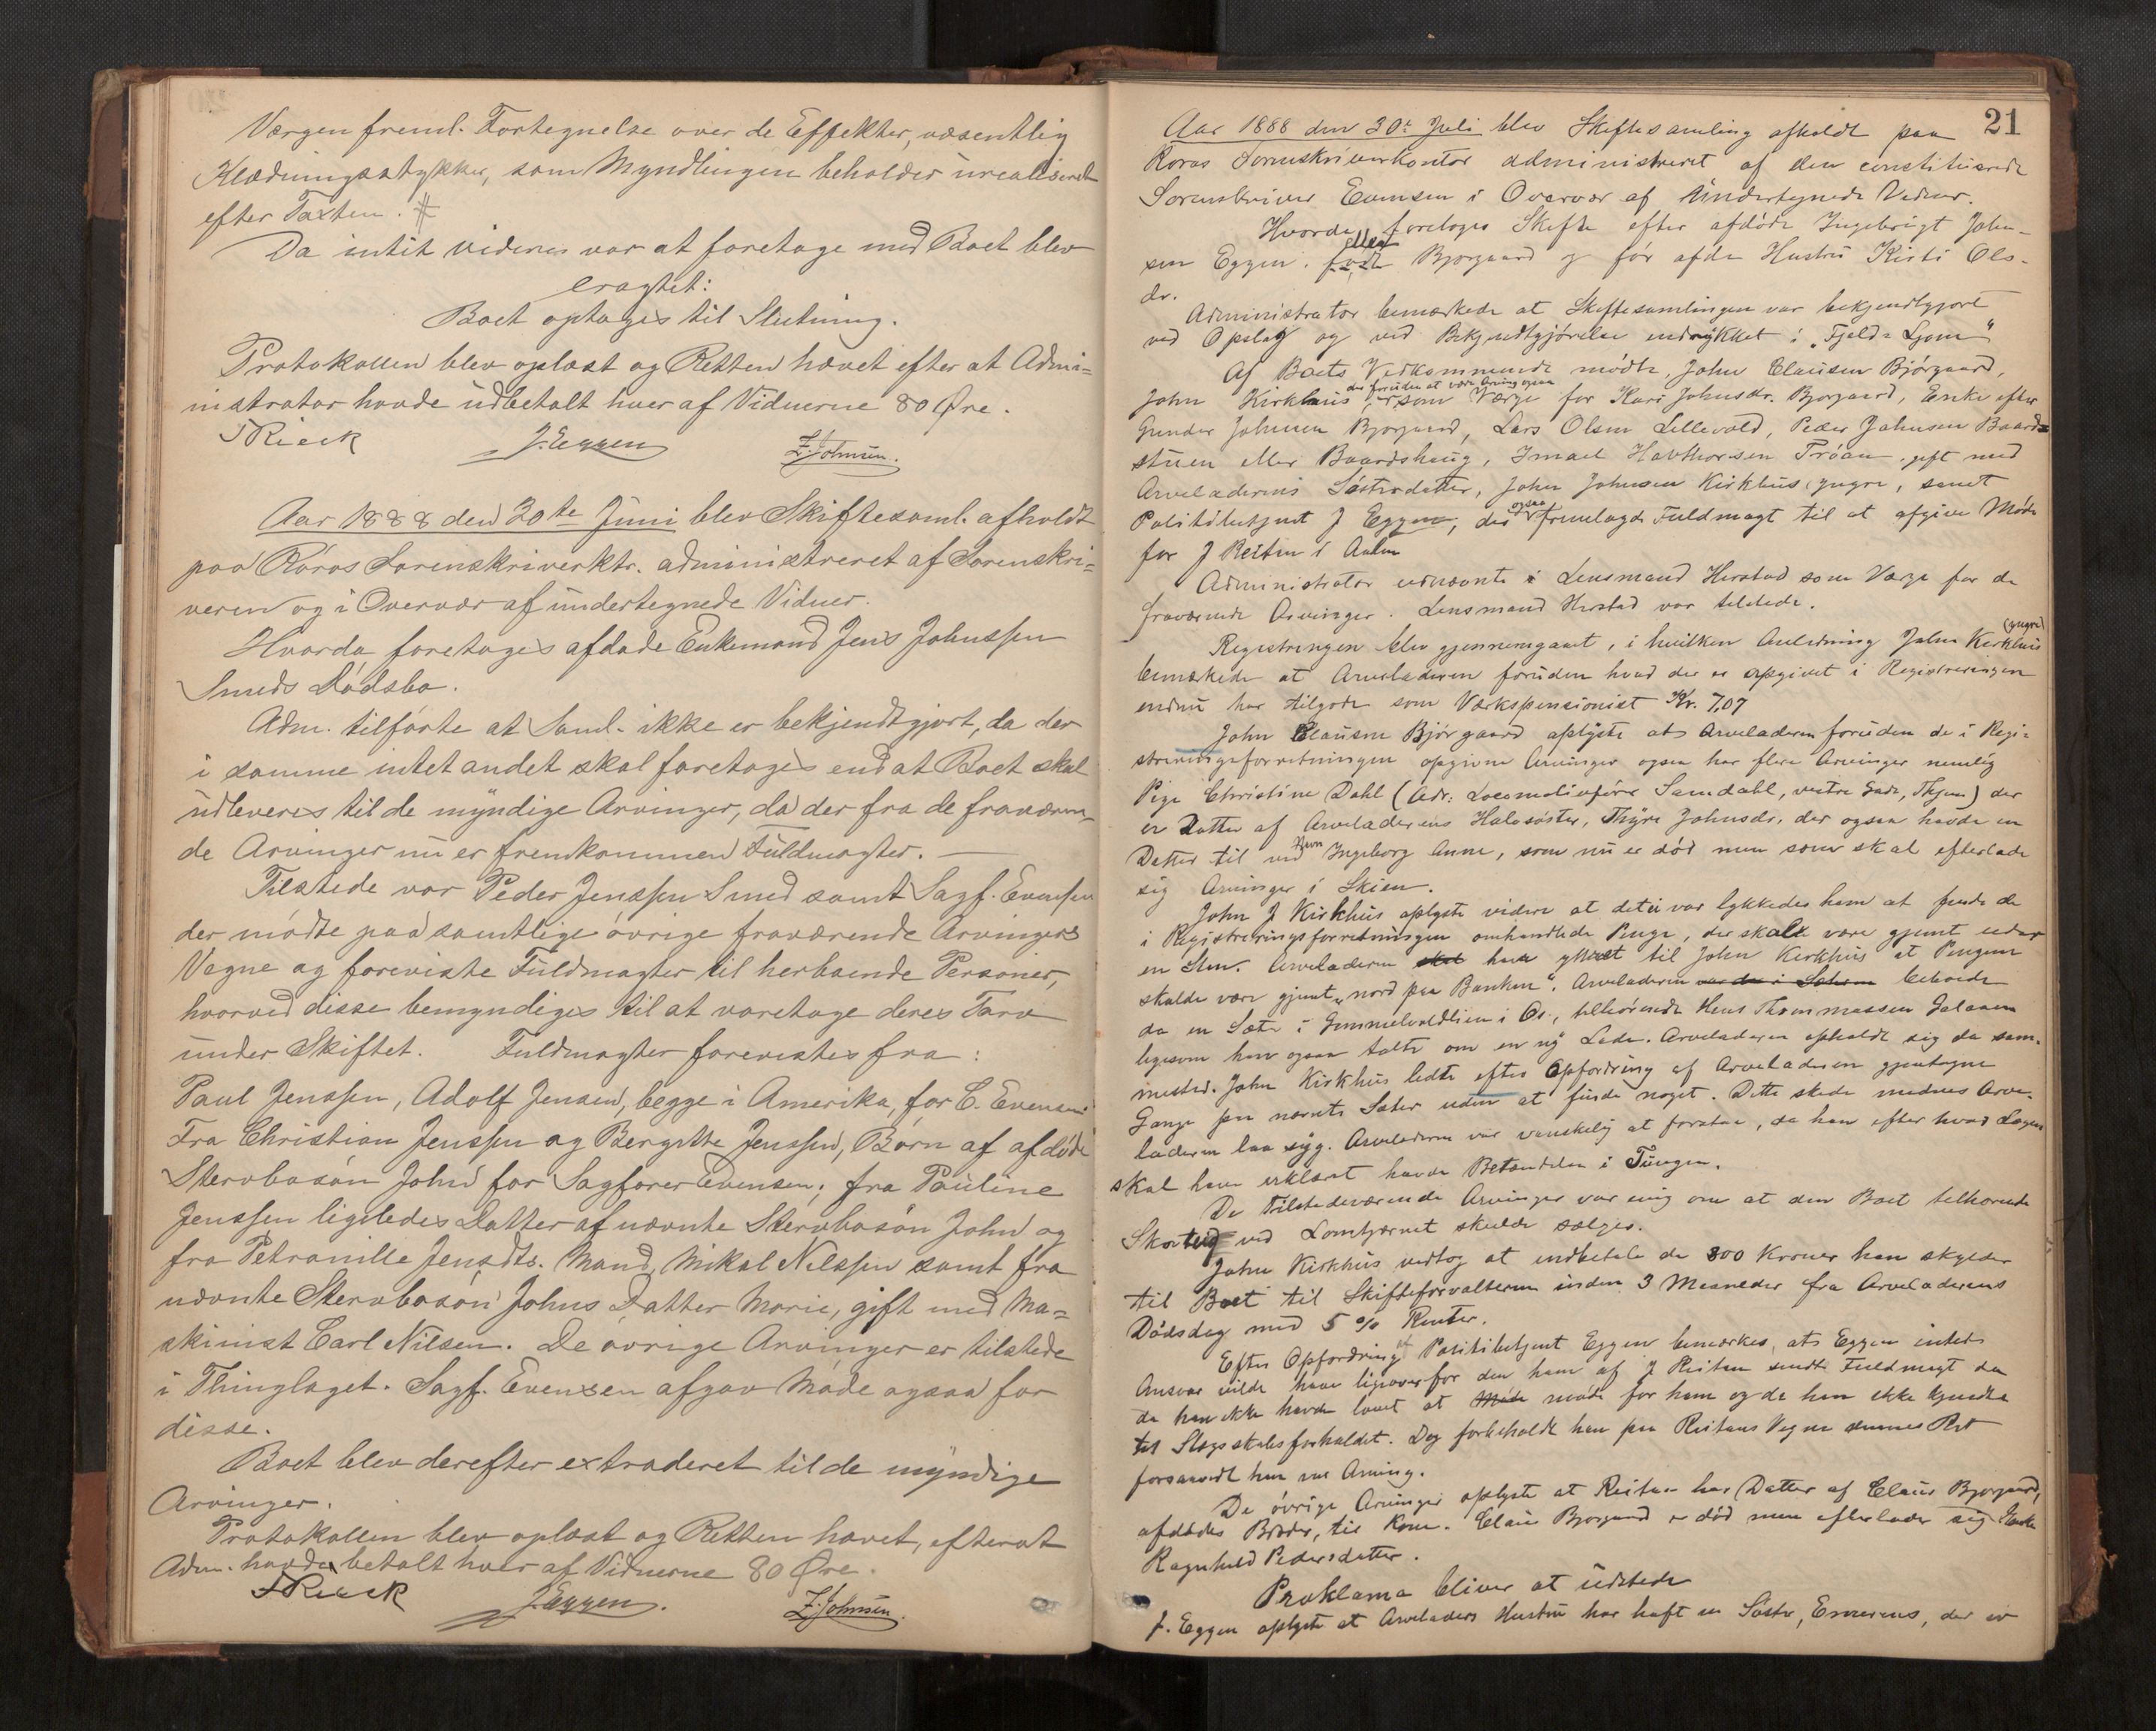 Værgen freml. Fortegnelse over de Effekter, væsentlig
Klædningsstykker, som Myndlingen beholder urealiseret
efter Taxten. #
Da intet videre var at foretage med Boet blev
eragtet:
Boet optages til Slutning.
Protokollen blev oplæst og Retten hævet efter at Admi=
nistrator havde udbetalt hver af Vidnerne 80 Øre.
Rieck J. Eggen Z. Johnsen.
Aar 1888 den 30te Juni blev Skiftesaml. afholdt
paa Røros Sorenskriverktr. administreret af Sorenskri=
veren og i Overvær af undertegnede Vidner.
Hvorda foretages afdøde Enkemand Jens Johnssen
Smeds Dødsbo.
Adm. tilførte at Saml. ikke er bekjendtgjort, da der
i samme intet andet skal foretages end at Boet skal
udleveres til de myndige Arvinger, da der fra de fraværen-
de Arvinger nu er fremkommen Fuldmagter.
Tilstede var Peder Jenssen Smed samt Sagf. Evensen
der mødte paa samtlige øvrige fraværende Arvingers
Vegne og foreviste Fuldmagter til herboende Personer,
hvorved disse bemyndiges til at varetage deres Tarv
under Skiftet. Fuldmagter forevistes fra:
Paul Jenssen, Adolf Jensen, begge i Amerika, for C. Evensen
Fra Christian Jenssen og Bergitte Jenssen, Børn af afdøde
Stervbosøn John for Sagfører Evensen; fra Pauline
Jenssen ligeledes Datter af nævnte Stervbosøn John og
fra Petronille Jensdts. Mand, Mikal Nilssen samt fra
nævnte Stervbosøn Johns Datter Marie, gift med Ma=
skinist Carl Nilsen. De øvrige Arvinger er tilstede
i Thinglaget. Sagf. Evensen afgav Møde ogsaa for
disse.
Boet blev derefter extraderet til de myndige
Arvinger.
Protokollen blev oplæst og Retten hævet, efterat
Adm. havde betalt hver af Vidnerne 80 Øre.
Rieck J. Eggen. Z. Johnsen.
21
Aar 1888 den 30te Juli blev Skiftesamling afholdt paa
Røros Sorenskriverkontor administreret af den constituerede
Sorenskriver Evensen i Overvær af Undertegnede Vidner.
Hvorda foretoges Skifte efter afdøde Ingebrigt John-
sen Eggen, født eller Bjorgaard og før afdøde Hustru Kirsti Ols-
dr.
Administrator bemærkede at Skiftesamlingen var bekjendtgjort
ved Opslag og ved Bekjendtgjørelse indrykket i "Fjeld-Ljom"
Af Boets Vedkommende mødte, John Clausen Bjørgaard,
John Kirkhus, der foruden at være Arving ogsaa er som Værge for Kari Johnsdr. Bjorgaard, Enke efter
Gunder Johnsen Bjorgaard, Lars Olsen Lillevold, Peder Johnsen Baard=
stuen eller Baardshaug, Ismael Havthorsen Trøan, gift med
Arveladerens Søsterdatter, John Johnsen Kirkhus, yngre, samt
Politibetjent J Eggen, der ogsaa fremlagde Fuldmagt til at afgive Møde
for J Reitan i Aalen
Administrator udnævnte Lensmand Hirstad som Værge for de
fraværende Arvinger. Lensmand Hirstad var tilstede.
Registreringen blev gjennemgaaet, i hvilken Anledning John Kirkhus (yngre)
bemærkede at Arveladeren foruden hvad der er opgivet i Registreringen
endnu har tilgode som Værkspensionist Kr. 7,07
John Clausen Bjørgaard oplyste at Arveladeren foruden de i Regi=
streringsforretningen opgivne Arvinger ogsaa har flere Arvinger nemlig
Pige Christine Dahl (Adr: Locomotivfører Samdahl, vestre Gade, Thjem) der
er Datter af Arveladerens Halvsøster, Thyre Johnsdr. der ogsaa havde en
Datter til ved Navn Ingeborg Anne, som nu er død men som skal efterlade
sig Arvinger i Skien.
John J Kirkhus oplyste videre at det ei var lykkedes ham at finde de
i Registreringsforretningen omhandlede Penge, der skal være gjemt under
en Sten. Arveladeren skal have yttret til John Kirkhus at Pengene
skulde være gjemt "nord paa Banken". Arveladeren var da i Sætren beboede
da en Sæter i Gammelvoldlien i Os, tilhørende Hans Thommassen Galaaen
ligesom han ogsaa talte om en ny Lade. Arveladeren opholdt sig da sam-
mested. John Kirkhus ledte efter Opfordring af Arveladeren gjentagne
Gange paa nævnte Sæter uden at finde noget. Dette skede medens Arve-
laderen laa syg. Arveladeren var vanskelig at forstaa, da han efter hvad Lægen
skal have erklæret havde Betændelse i Tungen.
De Tilstedeværende Arvinger var enig om at den Boet tilhørende
Skovteig ved Lomtjærnet skulde sælges.
John Kirkhus vedtog at indbetale de 300 Kroner han skylder
til Boet til Skifteforvalteren inden 3 Maaneder fra Arveladerens
Dødsdag med 5 % Renter.
Efter Opfordring af Politibetjent Eggen bemærkes, at Eggen intet
Ansvar vilde have ligeoverfor den ham af J Reitan sendte Fuldmagt da
da han ikke havde lovet at Møde møde for ham og da han ikke kjendte
til Slægtskabsforholdet. Dog forbeholdt han paa Reitans Vegne dennes Ret
forsaavidt han var Arving.
De øvrige Arvinger oplyste at Reitan har Datter af Claus Bjorgaard,
afdødes Broder, til Kone. Claus Bjorgaard er død men efterlader sig Enke
Ragnhild Pedersdatter.
Proklama bliver at udstede
J. Eggen oplyste at Arveladers Hustru har haft en Søster, Emerens, der er